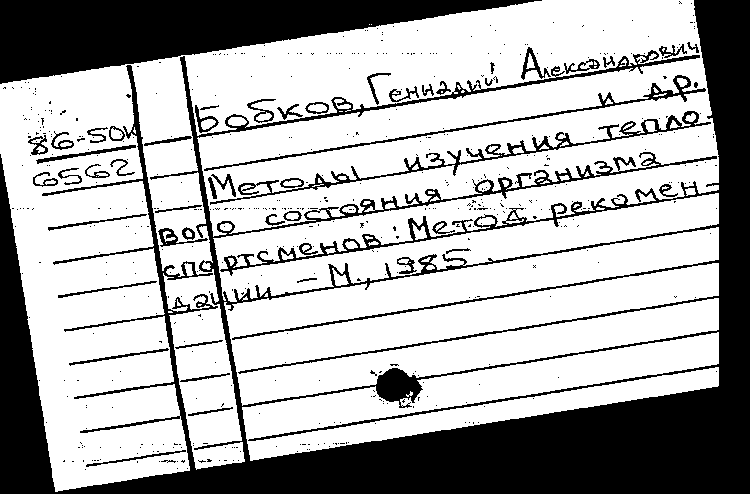 Бобков, Геннадий Александрович
и др.
86-50к
6562
Методы изучения тепло-
вого состояния организма
спортсменов: Метод. рекомен-
дации. – М., 1985.